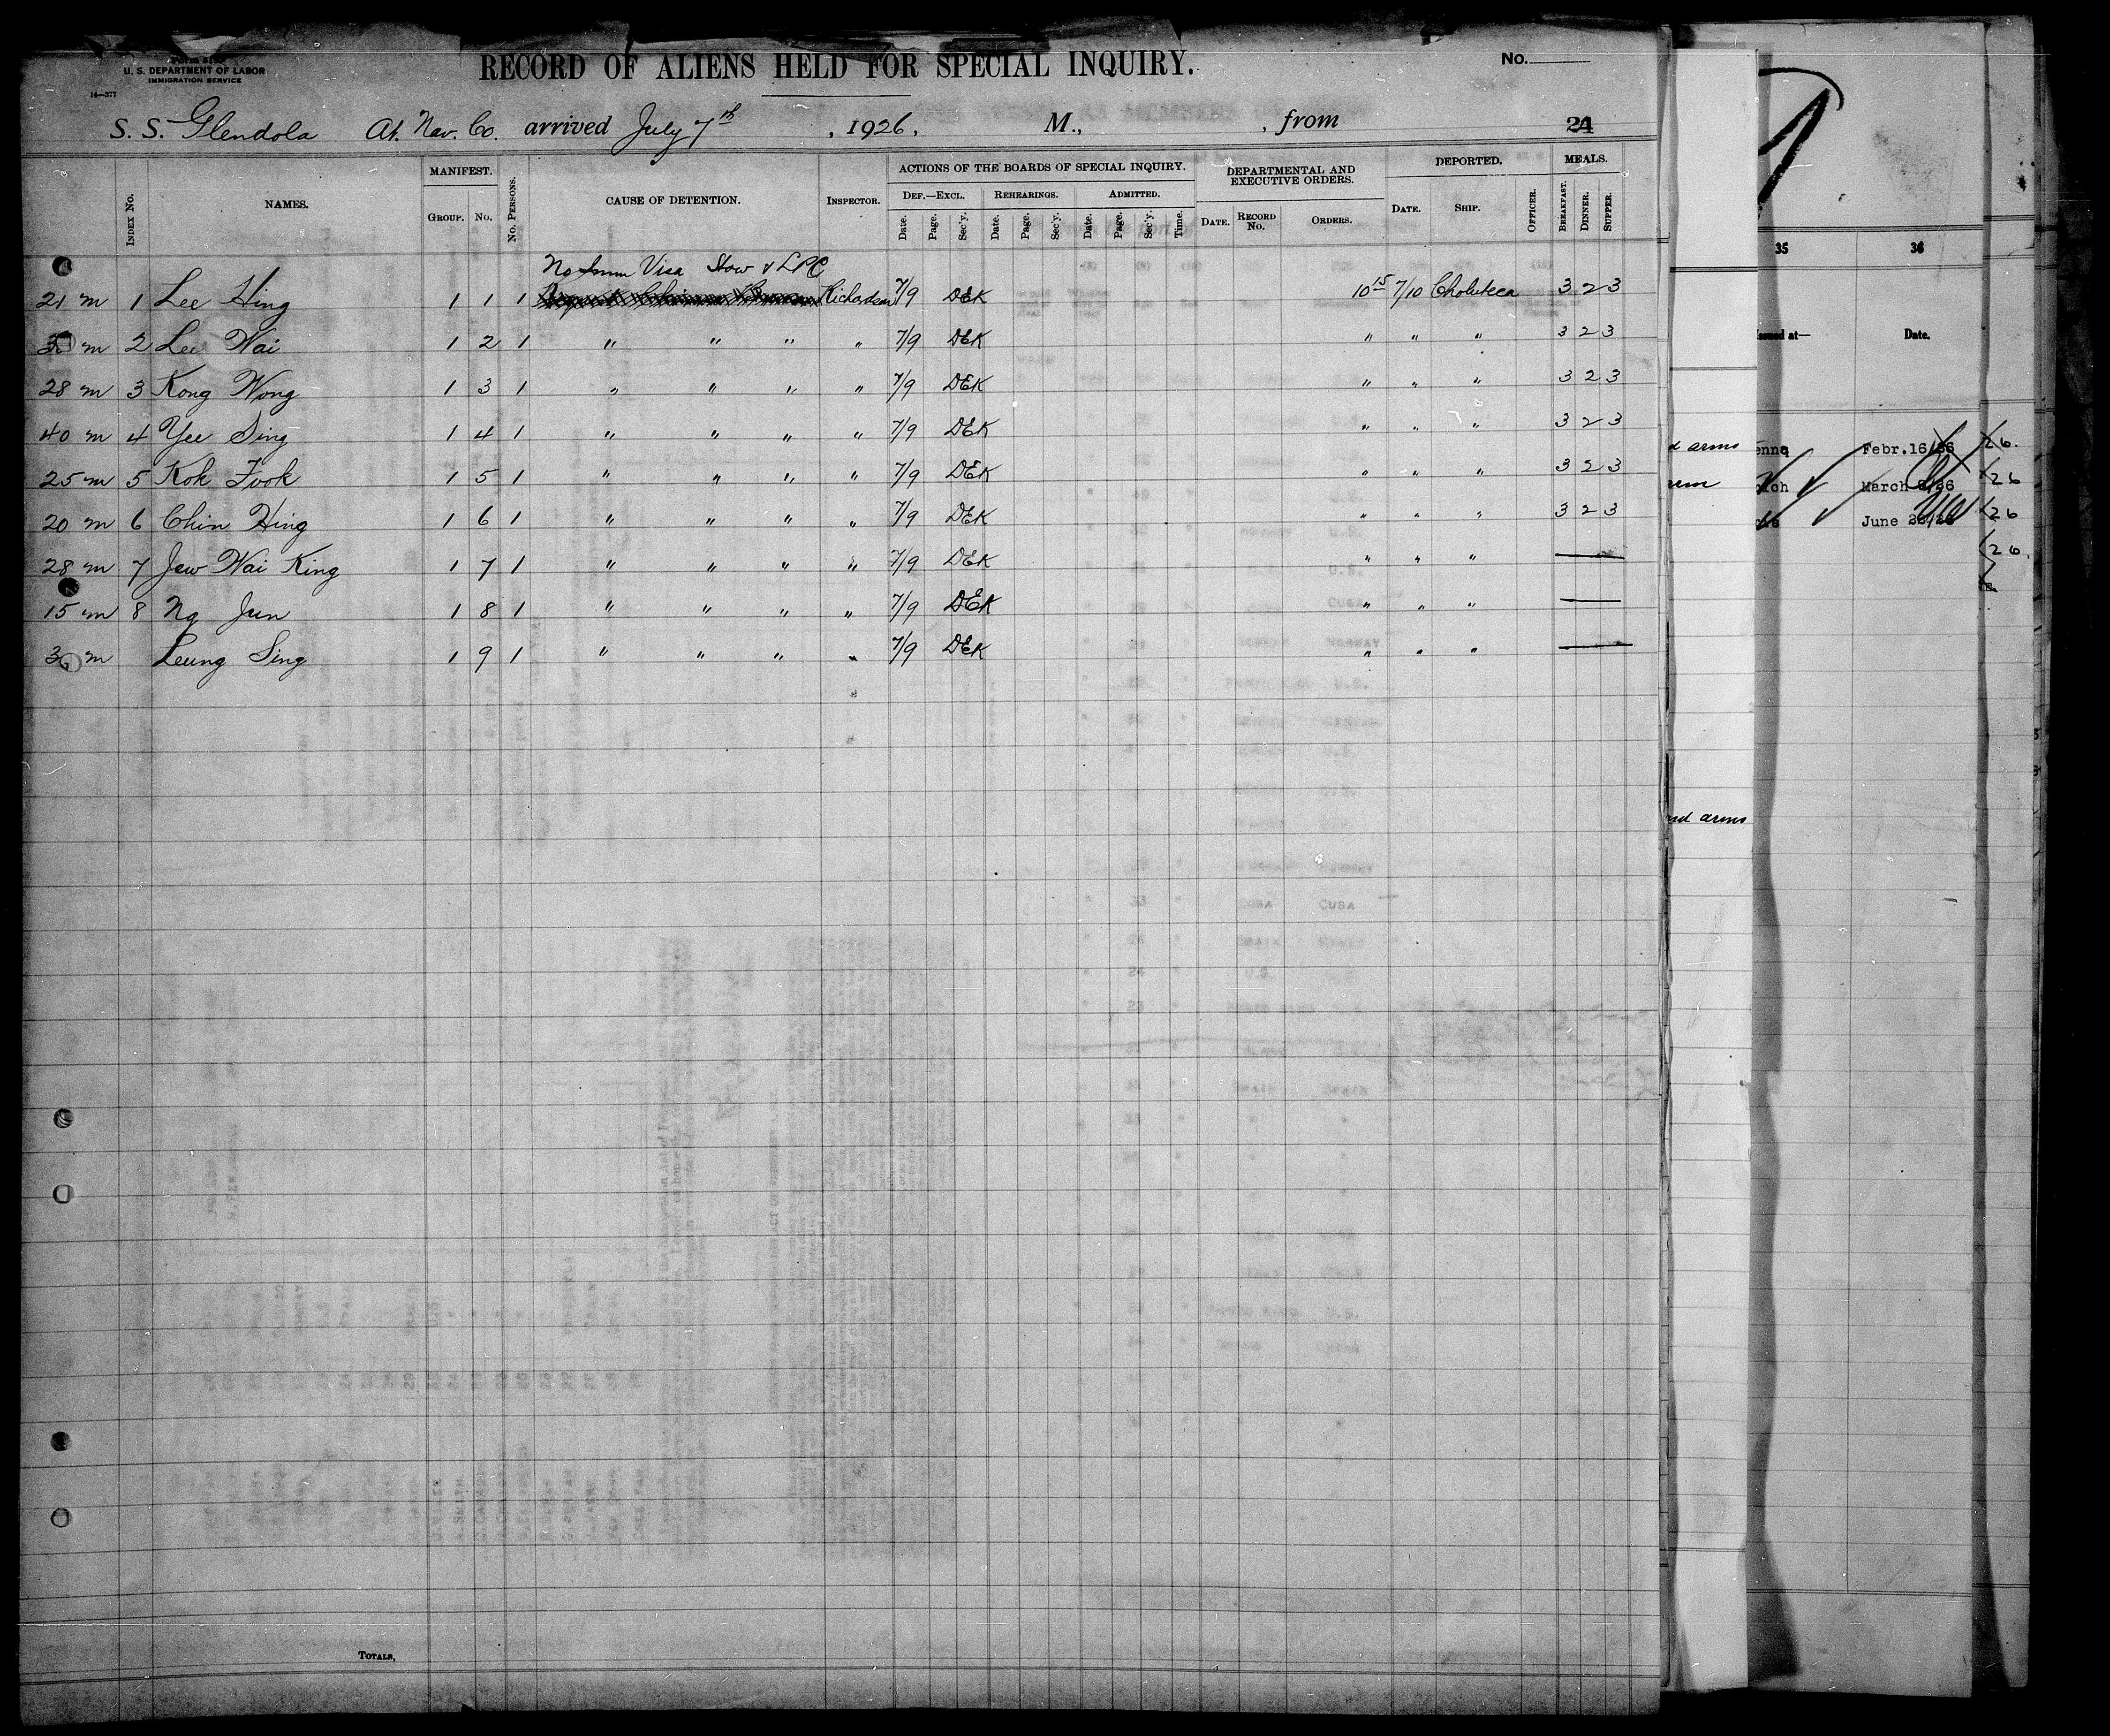 U. S. DEPARTMENT OF LABOR
IMMIGRATION SERVICE
14—377
RECORD OF ALIENS HELD FOR SPECIAL INQUIRY.
No.
S. S. Glendola At. Nav. Co. arrived July 7th, 1926, M., , from
24
INDEX No. NAMES. MANIFEST. GROUP. No. No. PERSONS. CAUSE OF DETENTION. INSPECTOR. ACTIONS OF THE BOARDS OF SPECIAL INQUIRY. DEF.—EXCL. Date. Page. Sec'y. REHEARINGS. Date. Page. Sec'y. ADMITTED. Date. Page. Sec'y. Time. DEPARTMENTAL AND EXECUTIVE ORDERS. DATE. RECORD No. ORDERS. DEPORTED. DATE. SHIP. OFFICER. MEALS. BREAKFAST. DINNER. SUPPER.
No Imm Visa Stow & LPC
21 m 1 Lee Hing 1 1 1 Richardson 7/9 DEK 10 15 7/10 Choluteca 3 2 3
m 2 Lee Wai 1 2 1 " " " " 7/9 DEK " " " 3 2 3
28 m 3 Kong Wong 1 3 1 " " " " 7/9 DEK " " " 3 2 3
40 m 4 Yee Sing 1 4 1 " " " " 7/9 DEK " " " 3 2 3
25 m 5 Kok Fook 1 5 1 " " " " 7/9 DEK " " " 3 2 3
20 m 6 Chin Hing 1 6 1 " " " " 7/9 DEK " " " 3 2 3
28 m 7 Jew Wai King 1 7 1 " " " " 7/9 DEK " " " —
15 m 8 Ng Jun 1 8 1 " " " " 7/9 DEK " " " —
m Leung Sing 1 9 1 " " " " 7/9 DEK " " " —
TOTALS,
35 36
issued at— Date.
d arms enna Febr.16/26 26.
March 26
June 26
26.
nd arms